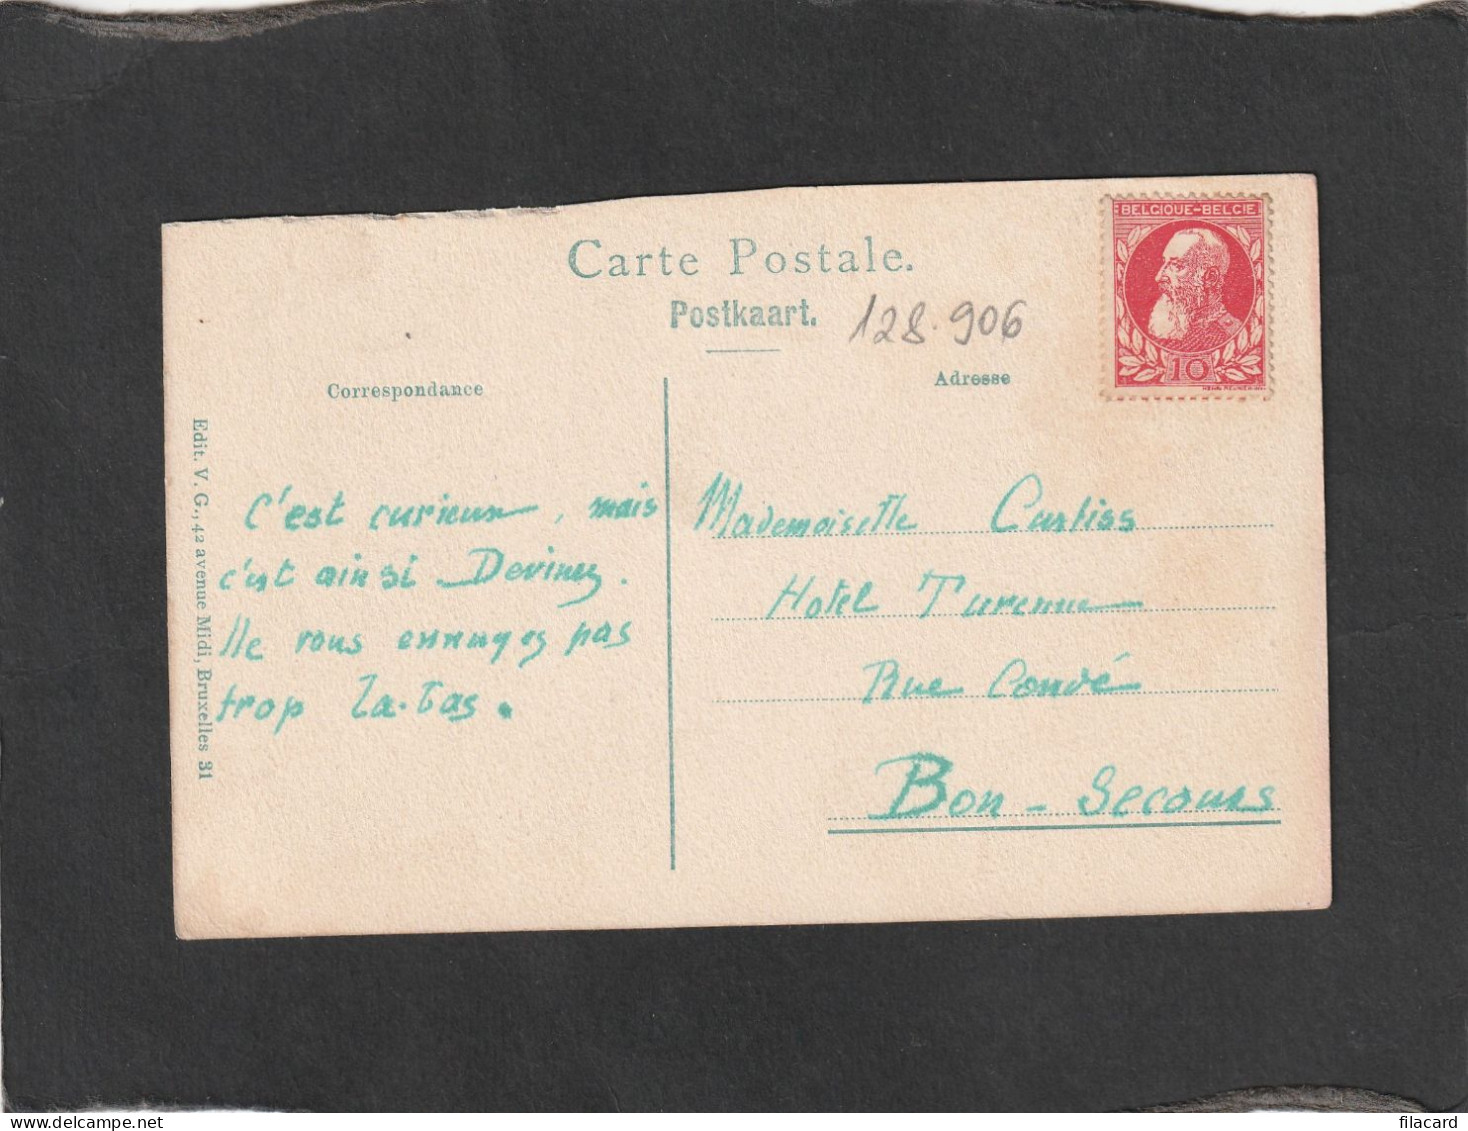 BELGIQUE-BELGIE
10
Carte Postale.
Postkaart.
128.906
Correspondance
Adresse
Edit. V. G., 42 avenue Midi, Bruxelles 31
C'est curieux, mais
c'est ainsi Devinez.
Ne vous ennuyez pas
trop la-bas.
Mademoiselle Carliss
Hotel Turenne
Rue Condé
Bon-Secours
filacard